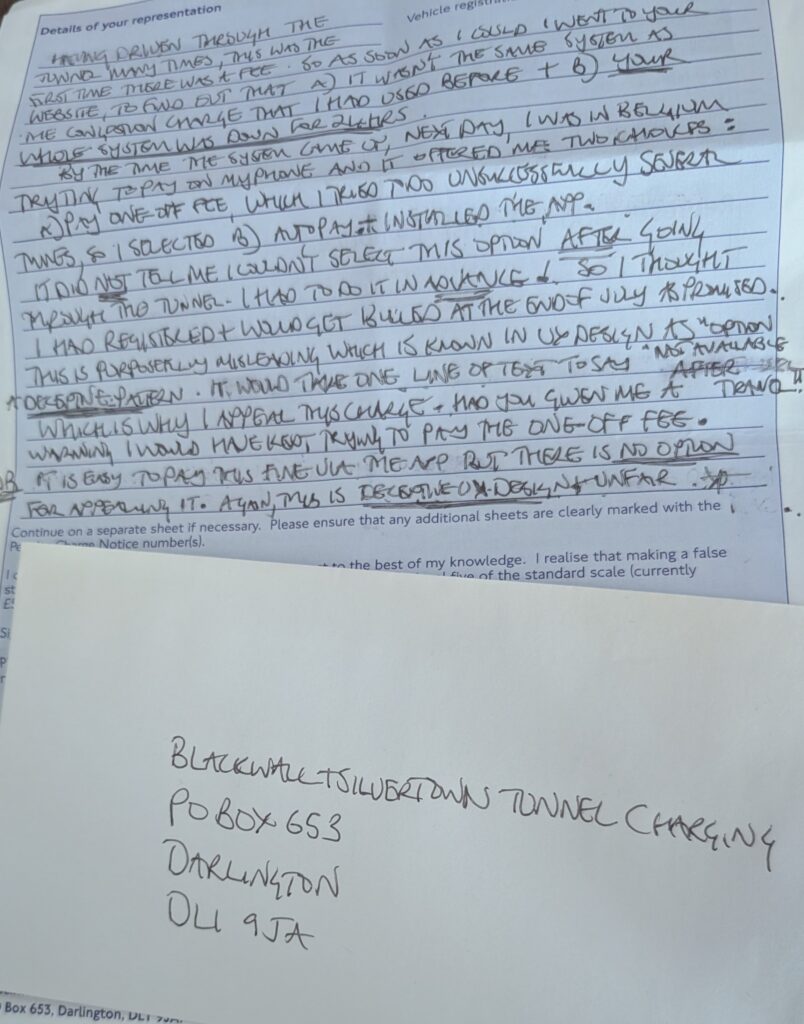 Details of your representation
Vehicle regist
HAVING DRIVEN THROUGH THE
TUNNEL MANY TIMES, THIS WAS THE
FIRST TIME THERE WAS A FEE. SO AS SOON AS I COULD I WENT TO YOUR
WEBSITE, TO FIND OUT THAT A) IT WASN'T THE SAME SYSTEM AS
THE CONGESTION CHARGE THAT I HAD USED BEFORE + B) YOUR
WHOLE SYSTEM WAS DOWN FOR 24HRS.
BY THE TIME THE SYSTEM CAME UP, NEXT DAY, I WAS IN BELGIUM
TRYING TO PAY ON MY PHONE AND IT OFFERED ME TWO CHOICES:
A) PAY ONE-OFF FEE, WHICH I TRIED TO DO UNSUCCESSFULLY SEVERAL
TIMES, SO I SELECTED B) AUTOPAY + INSTALLED THE APP.
IT DID NOT TELL ME I COULDN'T SELECT THIS OPTION AFTER GOING
THROUGH THE TUNNEL. I HAD TO DO IT IN ADVANCE! SO I THOUGHT
I HAD REGISTERED + WOULD GET BILLED AT THE END OF JULY AS PROMISED.
THIS IS PURPOSEFULLY MISLEADING WHICH IS KNOWN IN UX DESIGN AS
A DECEPTIVE PATTERN. IT WOULD TAKE ONE LINE OF TEXT TO SAY "OPTION NOT AVAILABLE AFTER TRAVEL".
WHICH IS WHY I APPEAL THIS CHARGE. HAD YOU GIVEN ME A
WARNING I WOULD HAVE KEPT TRYING TO PAY THE ONE-OFF FEE.
IT IS EASY TO PAY THIS FINE VIA THE APP BUT THERE IS NO OPTION
FOR APPEALING IT. AGAIN, THIS IS DECEPTIVE UX DESIGN + UNFAIR.
Continue on a separate sheet if necessary. Please ensure that any additional sheets are clearly marked with the
Notice number(s).
to the best of my knowledge. I realise that making a false
five of the standard scale (currently
BLACKWALL + SILVERTOWN TUNNEL CHARGING
PO BOX 653
DARLINGTON
DL1 9JA
Box 653, Darlington, DL1